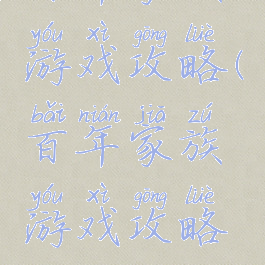 yóu xì gōng lüè
游戏攻略(
bǎi nián jiā zú
百年家族
yóu xì gōng lüè
游戏攻略